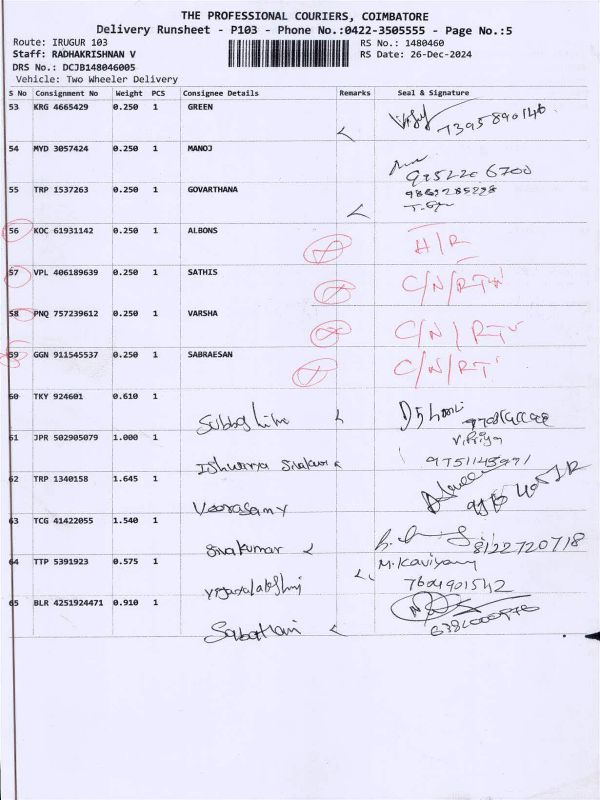 THE PROFESSIONAL COURIERS, COIMBATORE
Delivery Runsheet - P103 - Phone No.:0422-3505555 - Page No.:5
Route: IRUGUR 103 RS No.: 1480460
Staff: RADHAKRISHNAN V RS Date: 26-Dec-2024
DRS No.: DCJB148046005
Vehicle: Two Wheeler Delivery
S No Consignment No Weight PCS Consignee Details Remarks Seal & Signature
53 KRG 4665429 0.250 1 GREEN
7395890146
54 MYD 3057424 0.250 1 MANOJ
55 TRP 1537263 0.250 1 GOVARTHANA
56 KOC 61931142 0.250 1 ALBONS H/R
57 VPL 406189639 0.250 1 SATHIS C/N/RT
58 PNQ 757239612 0.250 1 VARSHA C/N/RT
59 GGN 911545537 0.250 1 SABRAESAN C/N/RT
60 TKY 924601 0.610 1
61 JPR 502905079 1.000 1
62 TRP 1340158 1.645 1 Veerasamy
63 TCG 41422055 1.540 1 Sivakumar 8122720718
64 TTP 5391923 0.575 1 M.Kaviyan
7604901542
65 BLR 4251924471 0.910 1